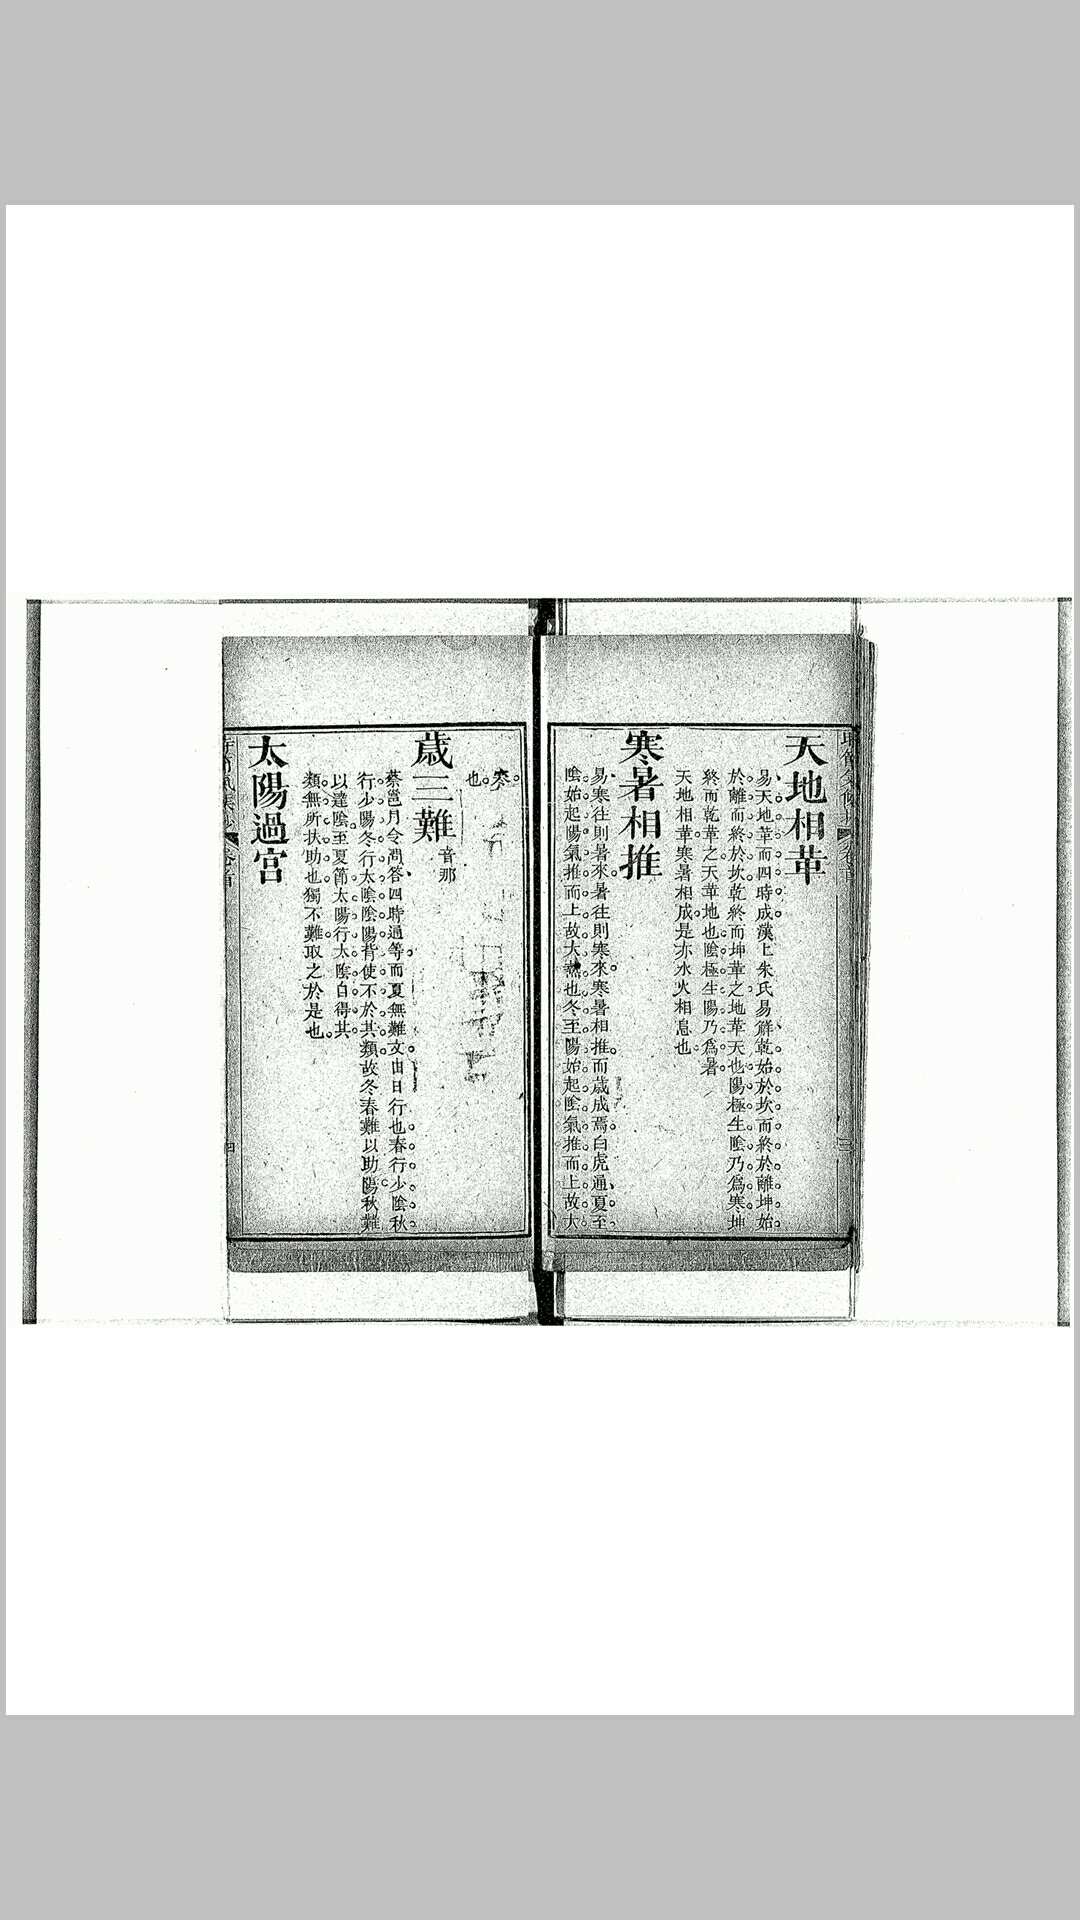 天地相革
易天地革而四時成漢上朱氏易解乾始於坎而終於離坤始
於離而終於坎乾終而坤革之地革天也陽極生陰乃爲寒坤
終而乾革之天革地也陰極生陽乃爲暑
天地相革寒暑相成是亦水火相息也
寒暑相推
易寒往則暑來暑往則寒來寒暑相推而歳成焉白虎通夏至
陰始起陽氣推而上故大熱也冬至陽始起陰氣推而上故大
三
寒
也
歳三難音那
蔡邕月令問答四時通等而夏無難文由日行也春行少陰秋
行少陽冬行太陰陰陽背使不於其類故冬春難以助陽秋難
以達陰至夏節太陽行太陰自得其
類無所扶助也獨不難取之於是也
太陽過宮
四